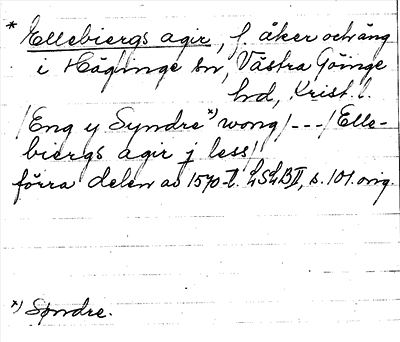 * Ellebiergs agir, f. åker och äng
i Häglinge sn, Västra Göinge
hd, Krist. l.
/Eng y Syndre*) wong/---/Elle-
biergs agir j less/
förra delen av 1570-t. LSLB II, s. 101. orig.
*) Søndre.